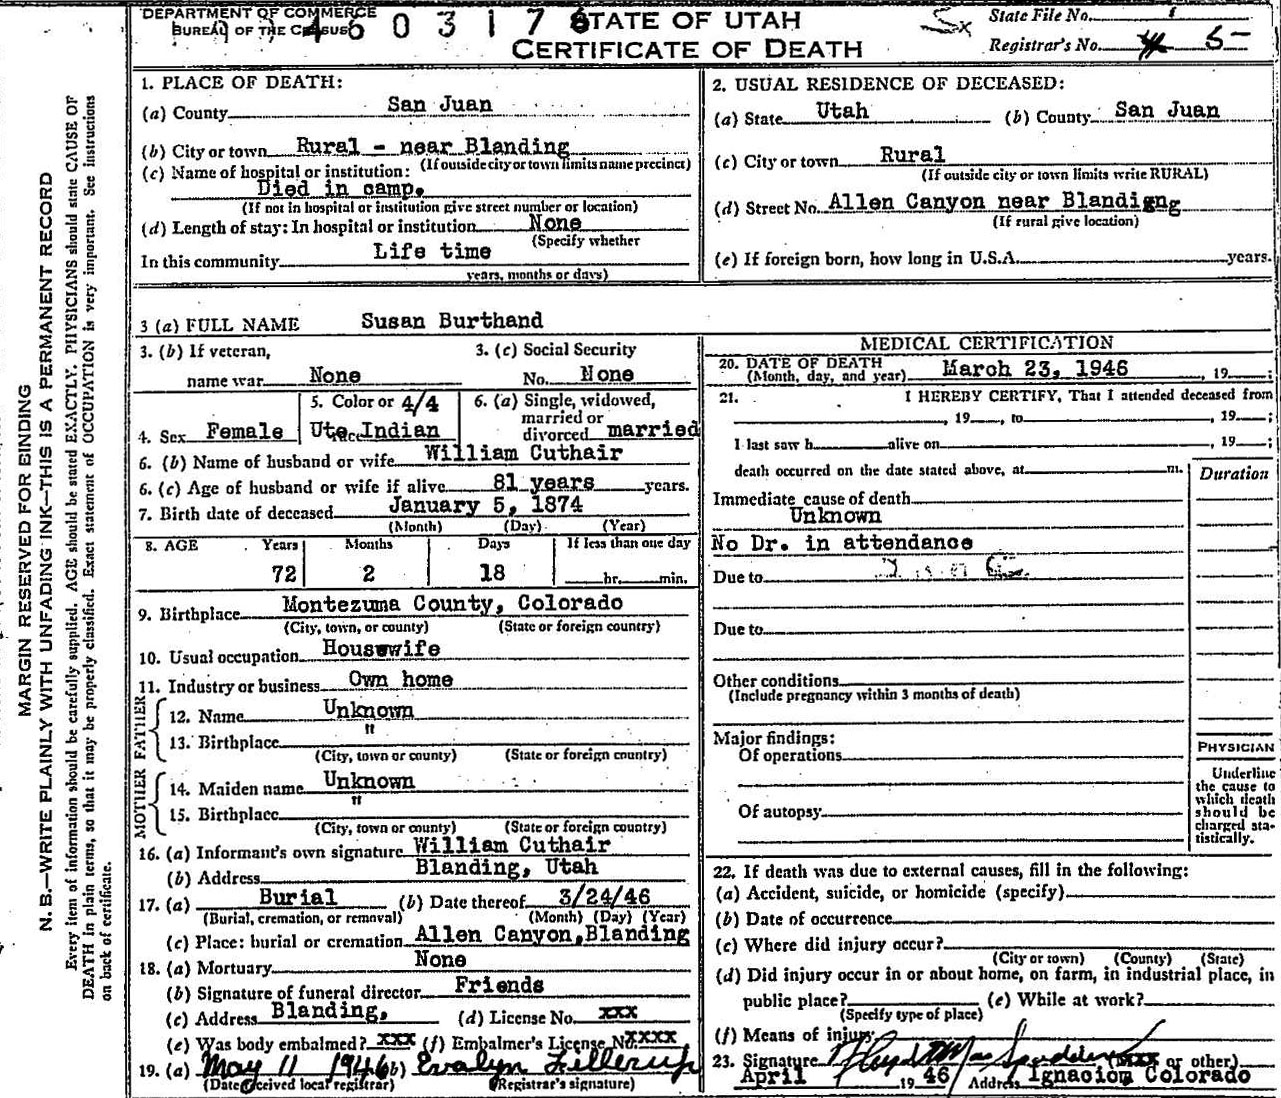 DEPARTMENT OF COMMERCE
BUREAU OF THE CENSUS
4 6 0 3 1 7 6
STATE OF UTAH
CERTIFICATE OF DEATH
State File No.
Registrar's No. 5-
MARGIN RESERVED FOR BINDING
N. B.—WRITE PLAINLY WITH UNFADING INK—THIS IS A PERMANENT RECORD
Every item of information should be carefully supplied. AGE should be stated EXACTLY. PHYSICIANS should state CAUSE OF
DEATH in plain terms, so that it may be properly classified. Exact statement of OCCUPATION is very important. See instructions
on back of certificate.
1. PLACE OF DEATH:
(a) County San Juan
(b) City or town Rural - near Blanding
(If outside city or town limits name precinct)
(c) Name of hospital or institution:
Died in camp.
(If not in hospital or institution give street number or location)
(d) Length of stay: In hospital or institution None
(Specify whether
In this community Life time
years, months or days)
2. USUAL RESIDENCE OF DECEASED:
(a) State Utah (b) County San Juan
(c) City or town Rural
(If outside city or town limits write RURAL)
(d) Street No. Allen Canyon near Blandigng
(If rural give location)
(e) If foreign born, how long in U.S.A. years.
3 (a) FULL NAME Susan Burthand
3. (b) If veteran, name war None
3. (c) Social Security No. None
4. Sex Female
5. Color or race 4/4 Ute Indian
6. (a) Single, widowed, married or divorced married
6. (b) Name of husband or wife William Cuthair
6. (c) Age of husband or wife if alive 81 years years.
7. Birth date of deceased January 5, 1874
(Month) (Day) (Year)
8. AGE Years Months Days If less than one day
72 2 18 hr. min.
9. Birthplace Montezuma County, Colorado
(City, town, or county) (State or foreign country)
10. Usual occupation Housewife
11. Industry or business Own home
FATHER
12. Name Unknown
13. Birthplace "
(City, town or county) (State or foreign country)
MOTHER
14. Maiden name Unknown
15. Birthplace "
(City, town or county) (State or foreign country)
16. (a) Informant's own signature William Cuthair
(b) Address Blanding, Utah
17. (a) Burial (b) Date thereof 3/24/46
(Burial, cremation, or removal) (Month) (Day) (Year)
(c) Place: burial or cremation Allen Canyon, Blanding
18. (a) Mortuary None
(b) Signature of funeral director Friends
(c) Address Blanding, (d) License No. xxx
(e) Was body embalmed? xxx (f) Embalmer's License No. xxxx
19. (a) May 11 1946 (b) Evalyn Fillerup
(Date received local registrar) (Registrar's signature)
MEDICAL CERTIFICATION
20. DATE OF DEATH
(Month, day, and year) March 23, 1946, 19 ;
21. I HEREBY CERTIFY, That I attended deceased from
, 19 , to , 19 ;
I last saw h alive on , 19 ;
death occurred on the date stated above, at m.
Duration
Immediate cause of death
Unknown
No Dr. in attendance
Due to
Due to
Other conditions
(Include pregnancy within 3 months of death)
Major findings:
Of operations
Of autopsy
PHYSICIAN
Underline
the cause to
which death
should be
charged sta-
tistically.
22. If death was due to external causes, fill in the following:
(a) Accident, suicide, or homicide (specify)
(b) Date of occurrence
(c) Where did injury occur?
(City or town) (County) (State)
(d) Did injury occur in or about home, on farm, in industrial place, in
public place? (e) While at work?
(Specify type of place)
(f) Means of injury
23. Signature Floyd (xxx or other)
April 1946 Address Ignaciom Colorado